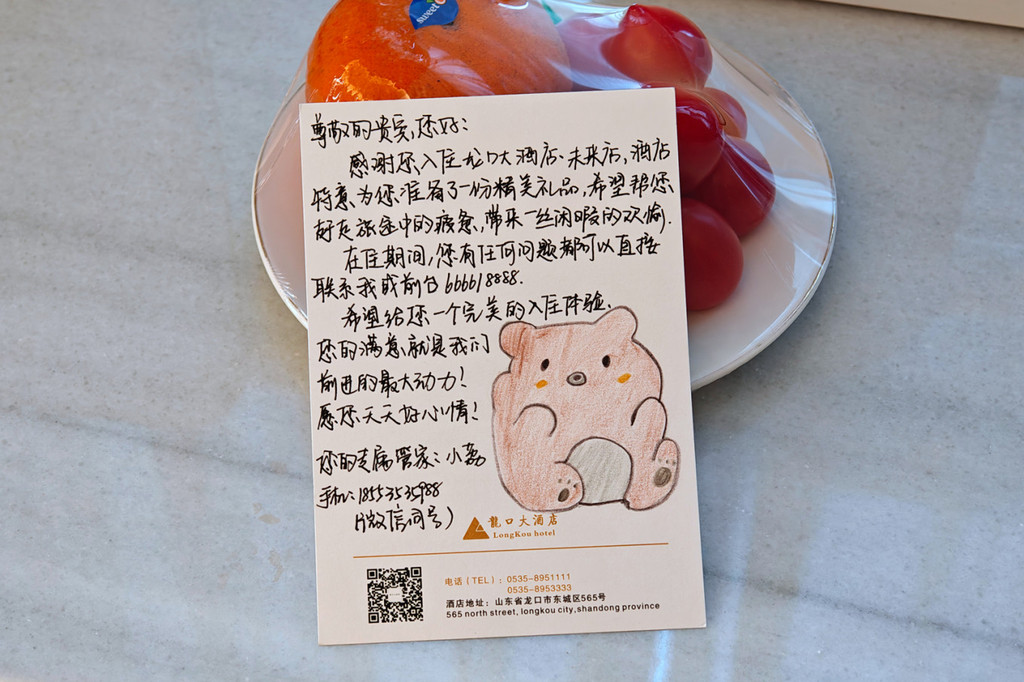 sweet
尊敬的贵宾,您好:
感谢您入住龙口大酒店·未来店,酒店
特意为您准备了一份精美礼品,希望帮您
赶走旅途中的疲惫,带来一丝闲暇的欢愉.
在住期间,您有任何问题都可以直接
联系我或前台6666 8888.
希望给您一个完美的入住体验.
您的满意就是我们
前进的最大动力!
愿您天天好心情!
您的专属管家:小磊
手机:18553535988
(微信同号)
龍口大酒店
LongKou hotel
电话(TEL):0535-8951111
0535-8953333
酒店地址:山东省龙口市东城区565号
565 north street, longkou city,shandong province